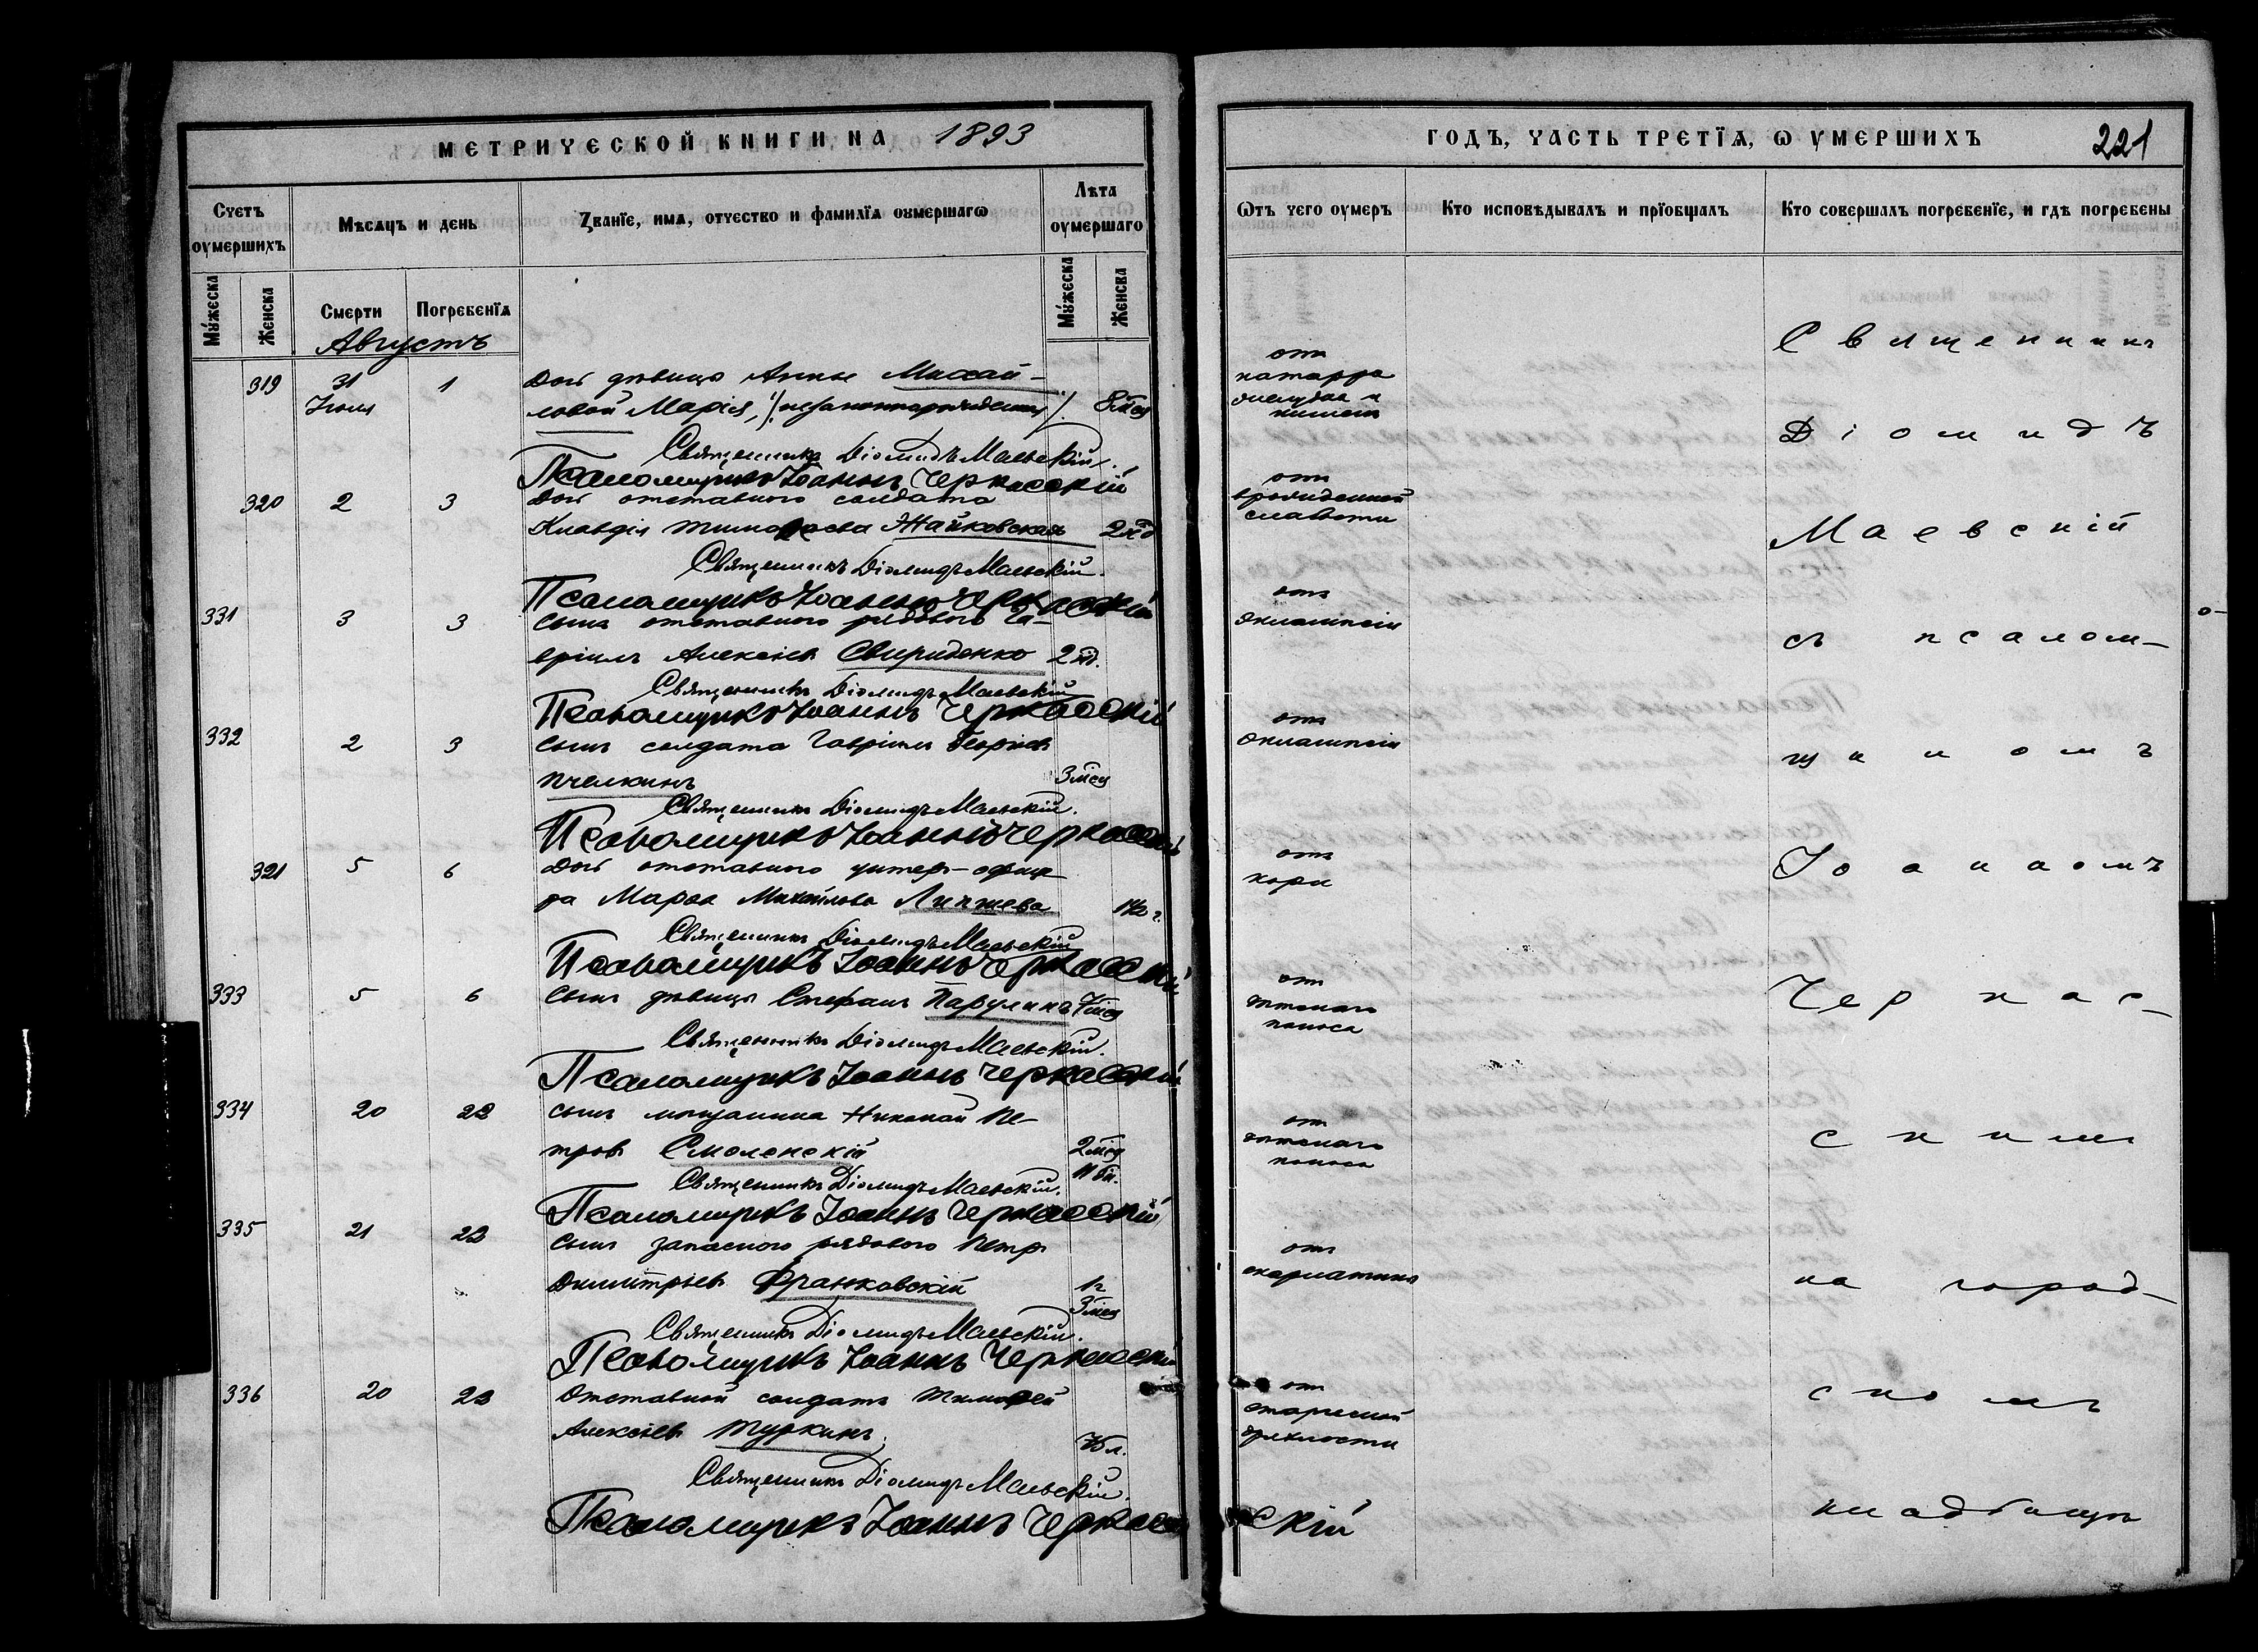 МЕТРИЧЕСКОЙ КНИГИ НА 1893
Счетъ оумершихъ
Мѣсяцъ и день
Званїе, имя, отчество и фамилїя оумершагѡ
Лѣта оумершаго
Мужеска
Женска
Смерти
Погребенїя
Мужеска
Женска
Августъ
319 31 Іюля 1 Дочь дѣвицы Анны Михай-
ловой Марія, /незаконнорожденная/. 8 мѣс
Священникъ Діомидъ Маевскій.
Псаломщикъ Іоаннъ Черкасскій
320 2 3 Дочь отставного солдата
Клавдія Тимофеева Жайковская 2 нед
Священникъ Діомидъ Маевскій.
Псаломщикъ Іоаннъ Черкасскій
331 3 3 Сынъ отставного рядового Га-
вріилъ Алексіевъ Свириденко 2 нд.
Священникъ Діомидъ Маевскій
Псаломщикъ Іоаннъ Черкасскій
332 2 3 Сынъ солдата Гавріилъ Георгіевъ
Пчелкинъ 3 мѣсц
Священникъ Діомидъ Маевскій.
Псаломщикъ Іоаннъ Черкасскій
321 5 6 Дочь отставного унтеръ-офице-
ра Марѳа Михайлова 1½ г.
Священникъ Діомидъ Маевскій
Псаломщикъ Іоаннъ Черкасскій
333 5 6 Сынъ дѣвицы Стефанъ Парулинъ
Священникъ Діомидъ Маевскій.
Псаломщикъ Іоаннъ Черкасскій
334 20 22 Сынъ мѣщанина Николай Пе-
тровъ Смоленскій 2 мѣсц
11 дн.
Священникъ Діомидъ Маевскій.
Псаломщикъ Іоаннъ Черкасскій
335 21 22 Сынъ запасного рядового Петръ
Димитріевъ Франковскій 1 г
3 мѣсц
Священникъ Діомидъ Маевскій.
Псаломщикъ Іоаннъ Черкасскій
336 20 22 Отставной солдатъ Тимофей
Алексіевъ Туркинъ. 75 л.
Священникъ Діомидъ Маевскій.
Псаломщикъ Іоаннъ Черкасскій
ГОДЪ, ЧАСТЬ ТРЕТЇЯ, Ѡ УМЕРШИХЪ
221
Ѿтъ чего оумеръ
Кто исповѣдывалъ и прїобщалъ
Кто совершалъ погребенїе, и гдѣ погребены
отъ
катарра
желудка и
кишекъ
отъ
врожденной
слабости
отъ
эклампсіи
отъ
эклампсіи
отъ
кори
отъ
дѣтскаго
поноса
отъ
дѣтскаго
поноса
отъ
скарлатины
отъ
старческой
дряхлости
Священникъ
Діомидъ
Маевскій
съ псалом-
щикомъ
Іоанномъ
Черкас-
скимъ
на город-
скомъ
кладбищѣ